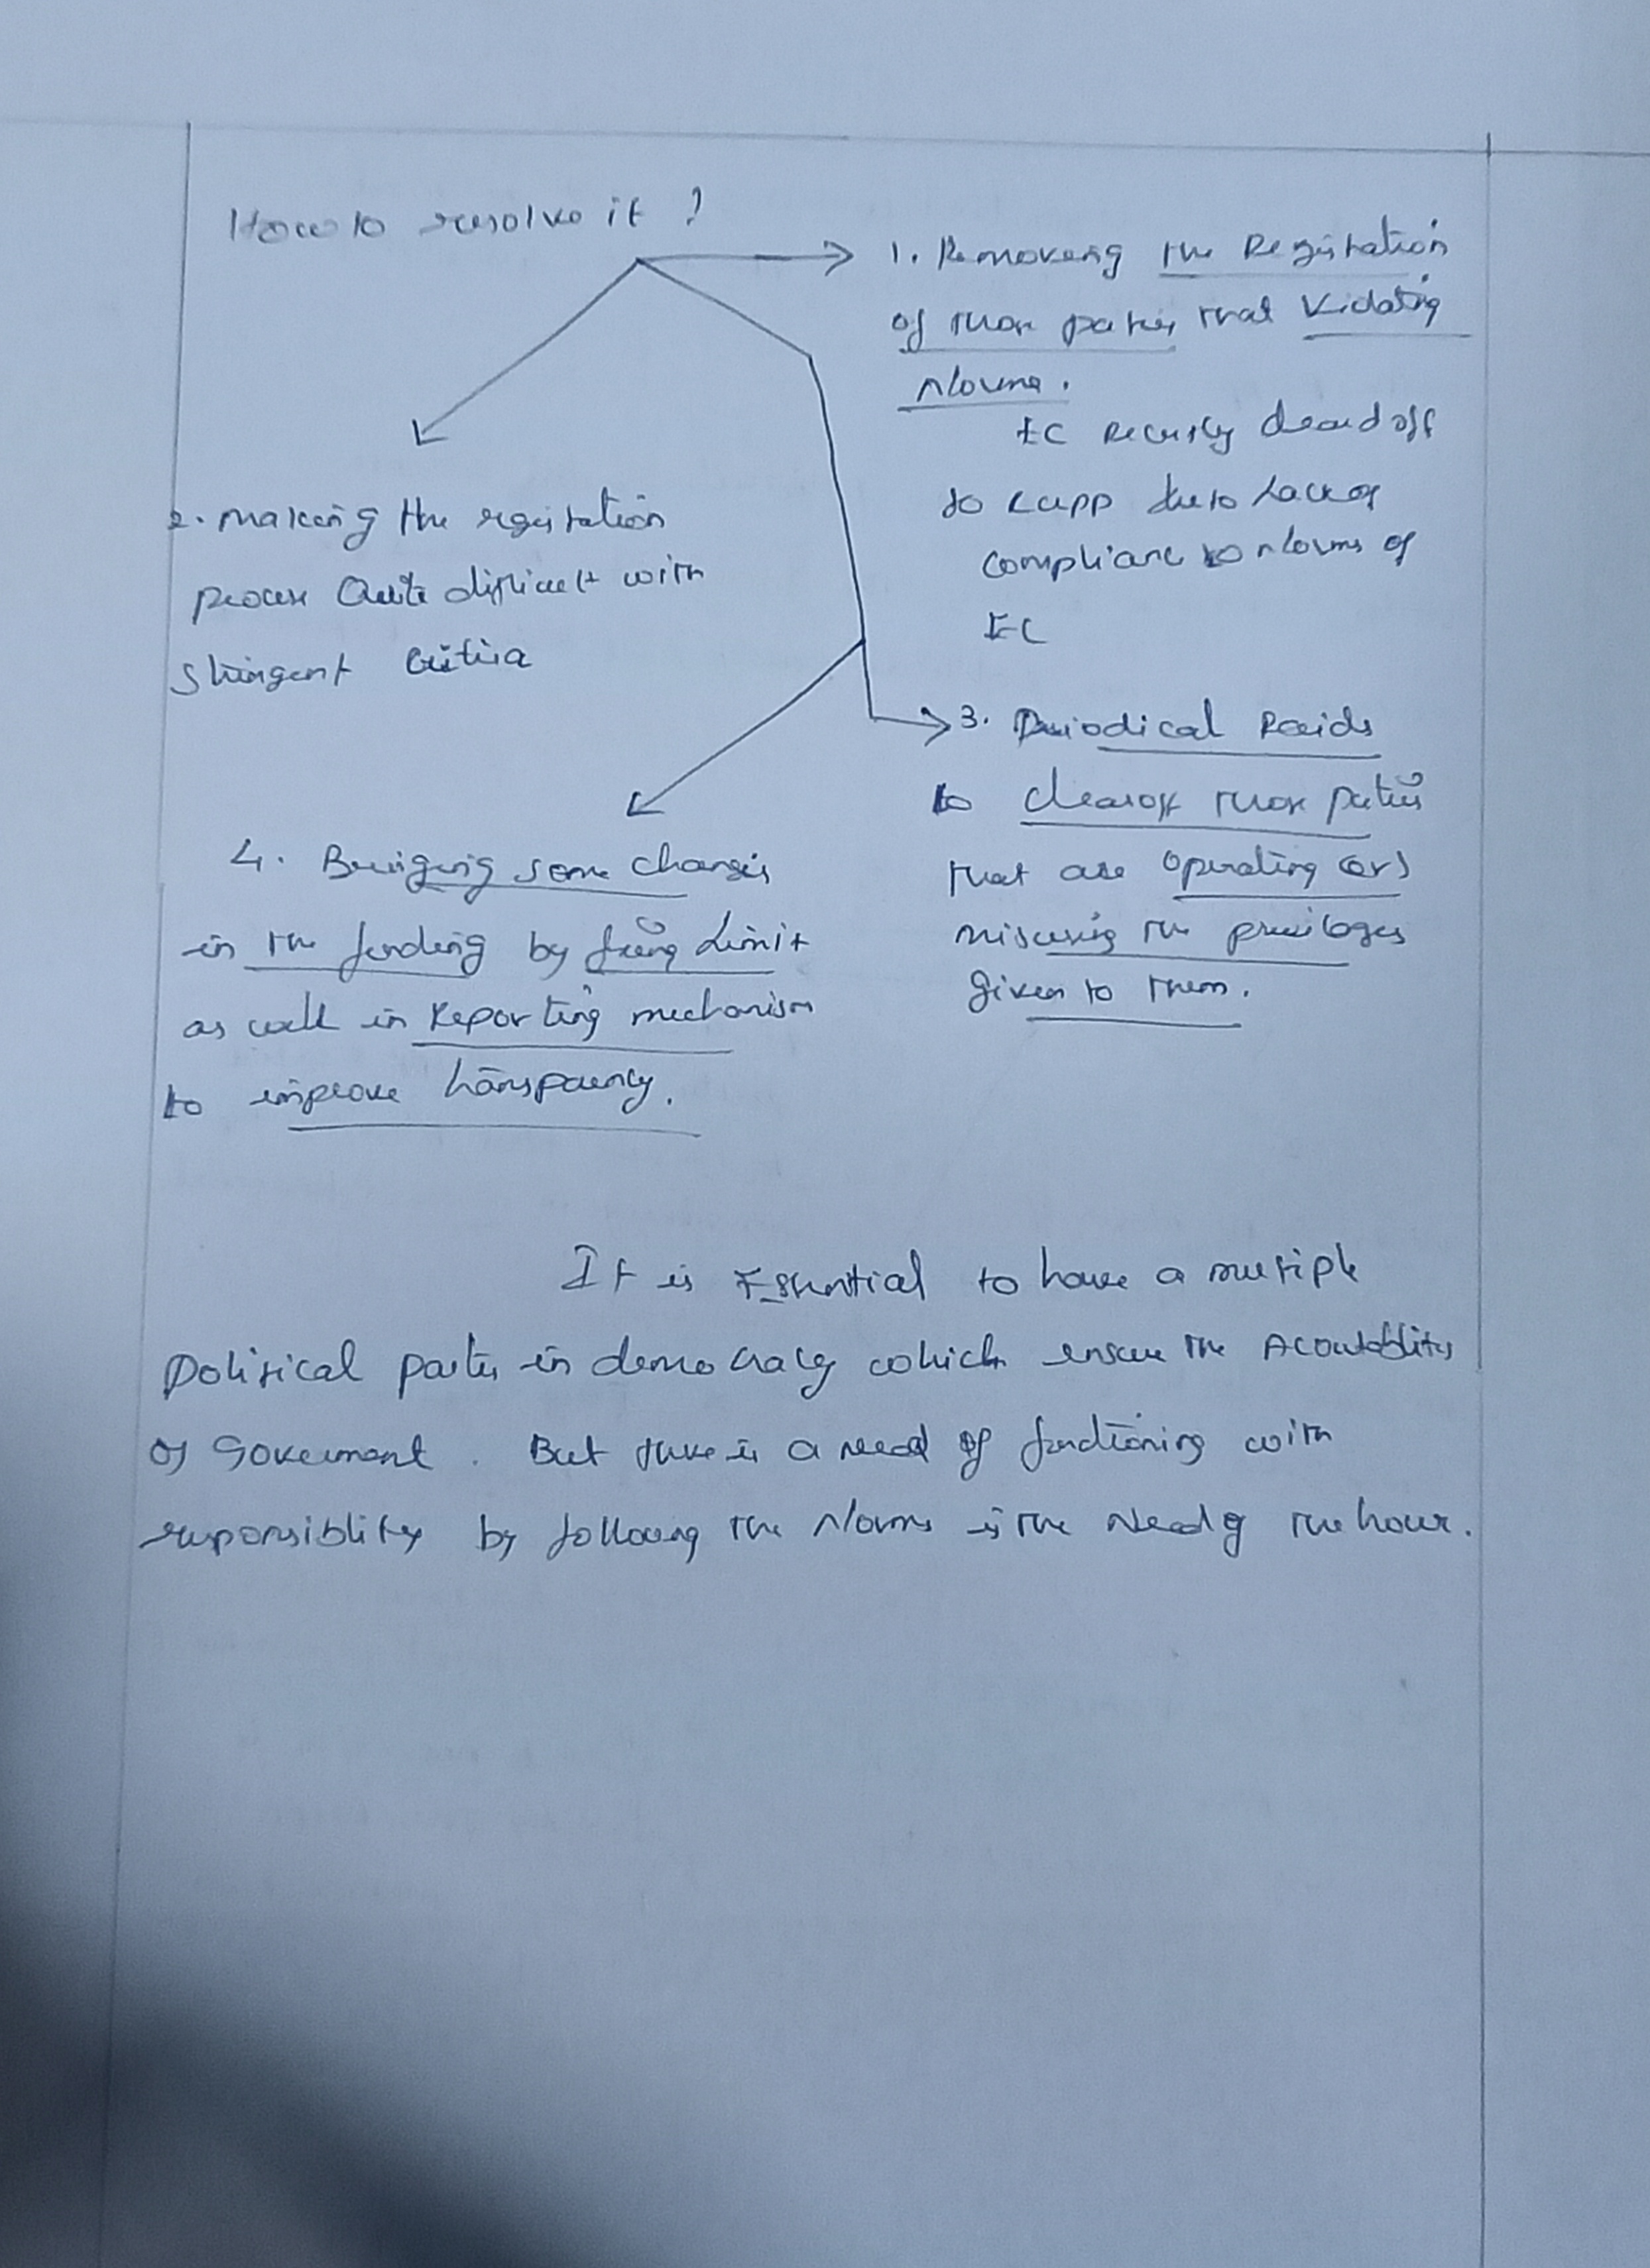 How to resolve it ?
1. Removing the Registration
of those parties that Violating
Norms.
EC Recently cleared off
LUPP due to Lack of
compliance to Norms of
EC
2. making the registation
process Quite difficult with
Stringent Criteria
3. Periodical Raids
to clearoff those parties
that are operating (or)
misusing the privileges
given to them.
4. Bringing some changes
in the funding by fixing Limit
as well in Reporting mechanism
to improve transparency.
It is Essential to have a multiple
Political parties in democracy which ensure the Accoutablity
of Government. But there is a need of functioning with
responsiblity by following the Norms is the Need of the hour.